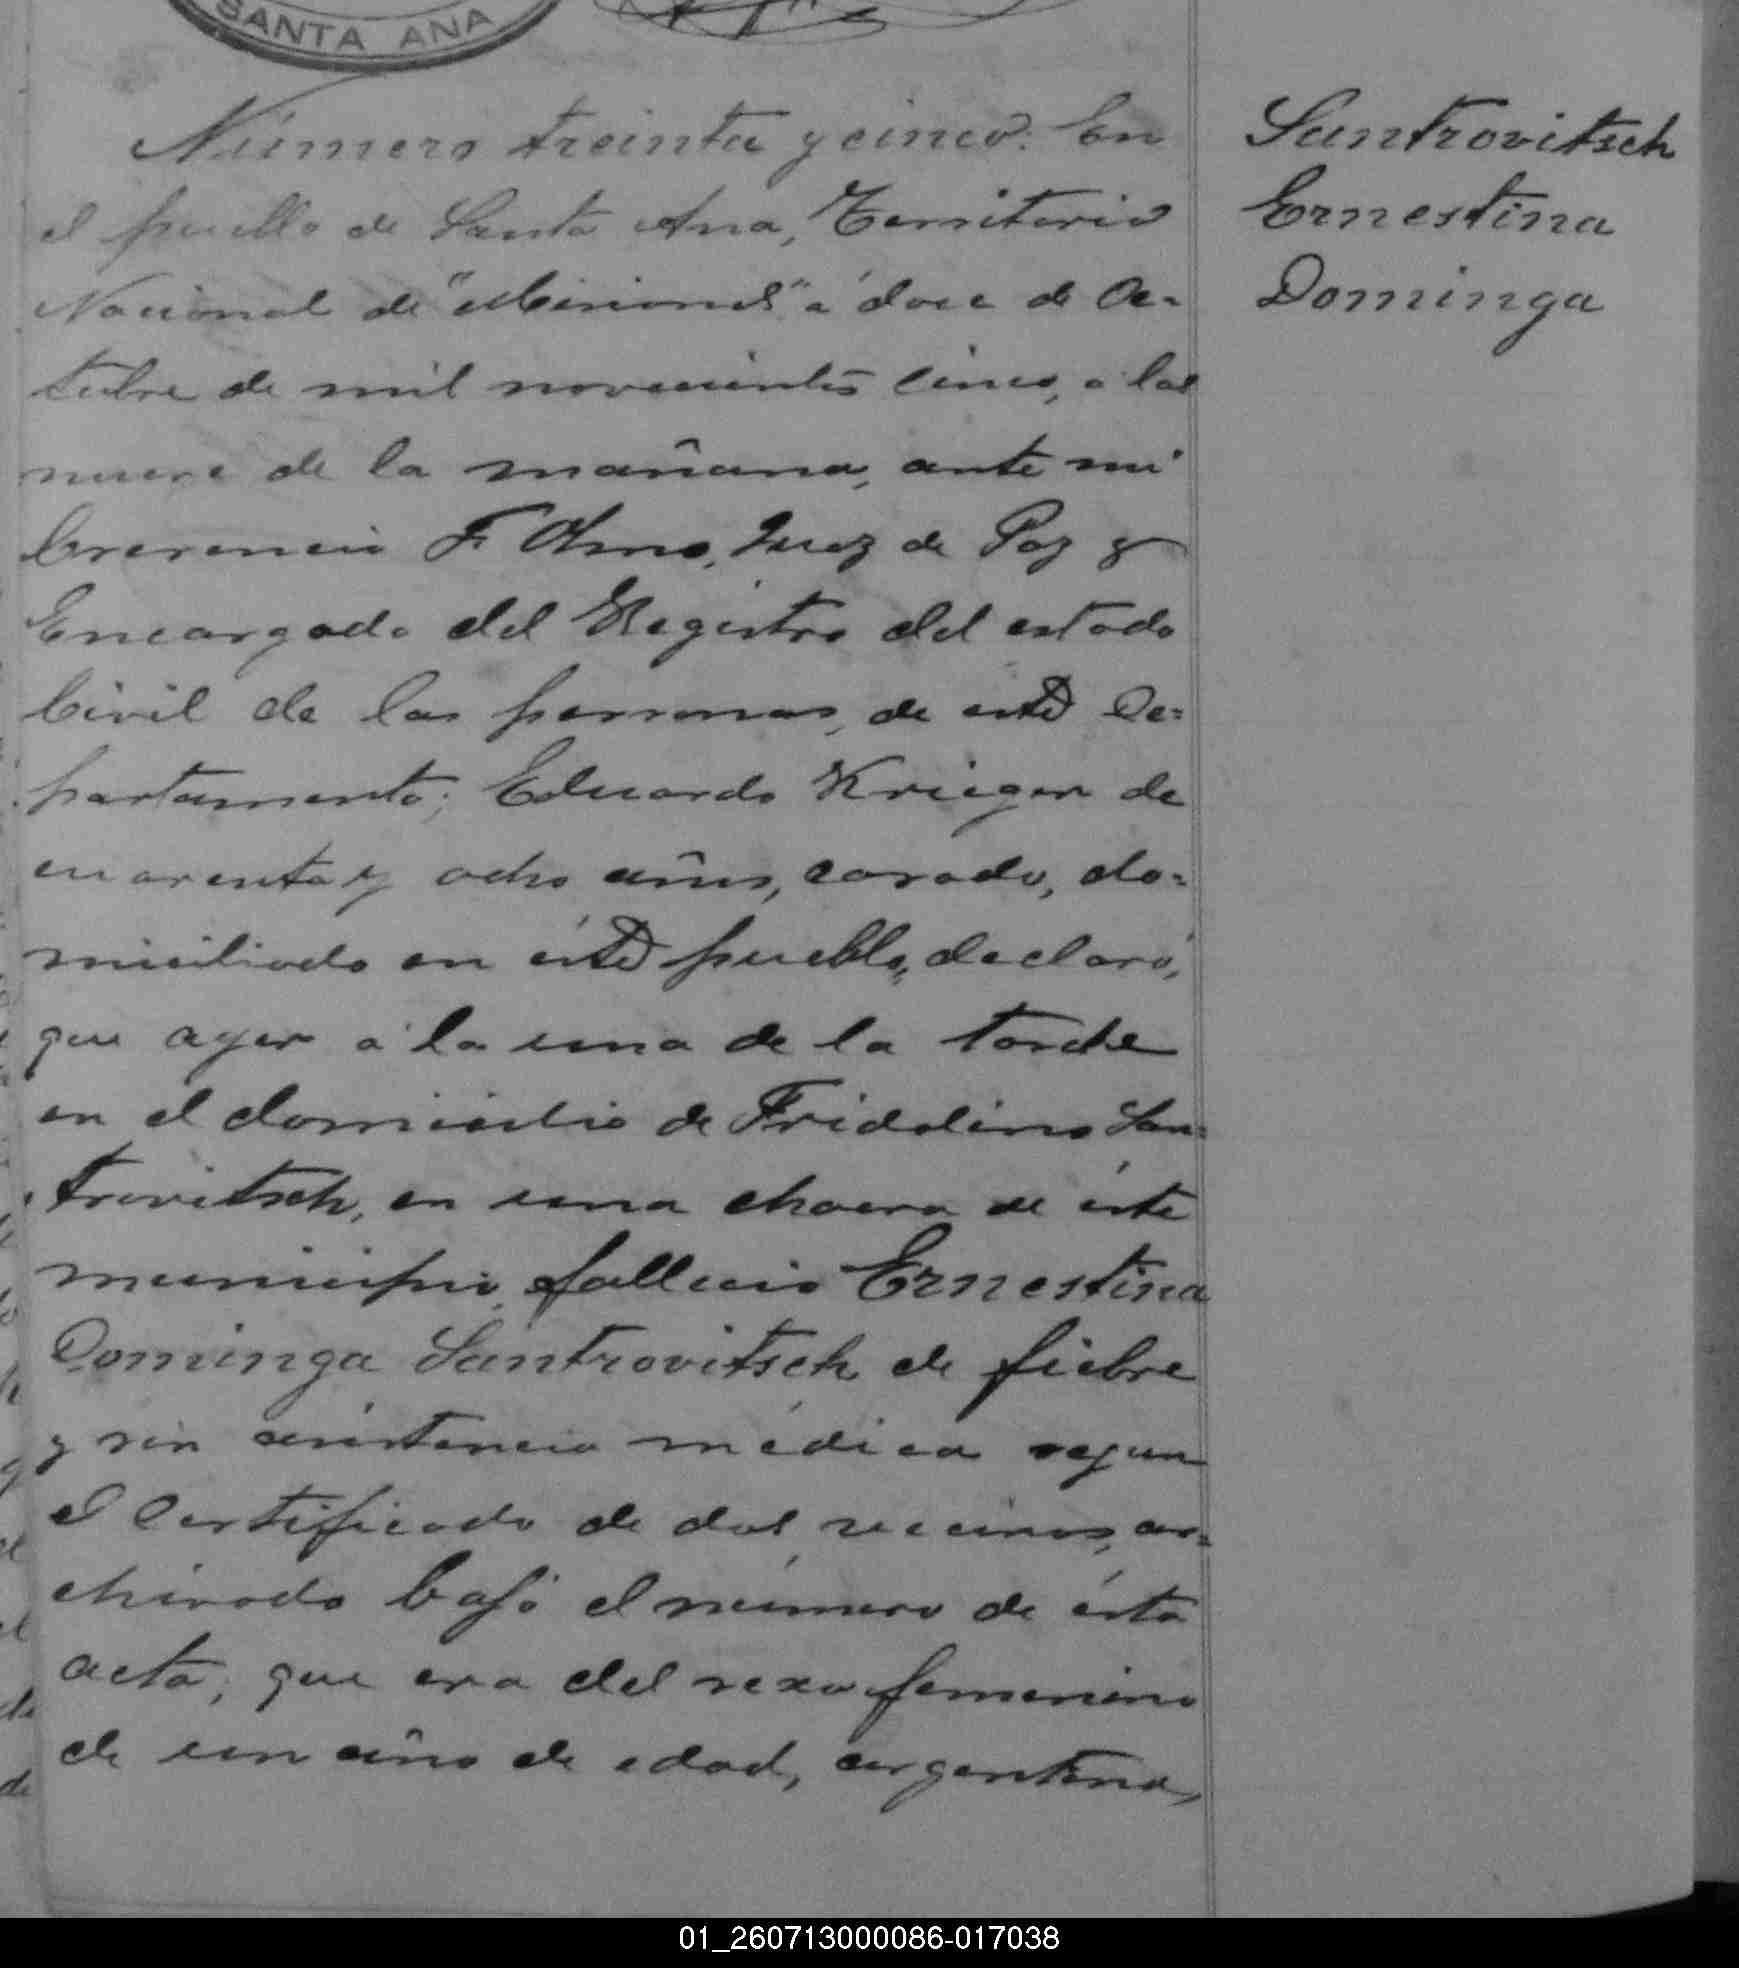 SANTA ANA
Número treinta y cinco. En
el pueblo de Santa Ana, Territorio
Nacional de "Misiones" a doce de Oc=
tubre de mil novecientos cinco, a las
nueve de la mañana, ante mi
F. Olmo, Juez de Paz y
Encargado del Registro del estado
Civil de las personas, de este De=
partamento; Eduardo Krieger de
cuarenta y ocho años, casado, do=
miciliado en éste pueblo, declaró,
que ayer a la una de la tarde
en el domicilio de Fridolino San=
trovitsch, en una chacra de éste
municipio, falleció Ernestina
Dominga Santrovitsch de fiebre
y sin asistencia médica segun
el certificado de dos vecinos, ar=
chivado bajo el número de ésta
acta; que era del sexo femenino
de un año de edad, argentina,
Santrovitsch
Ernestina
Dominga
01_260713000086-017038